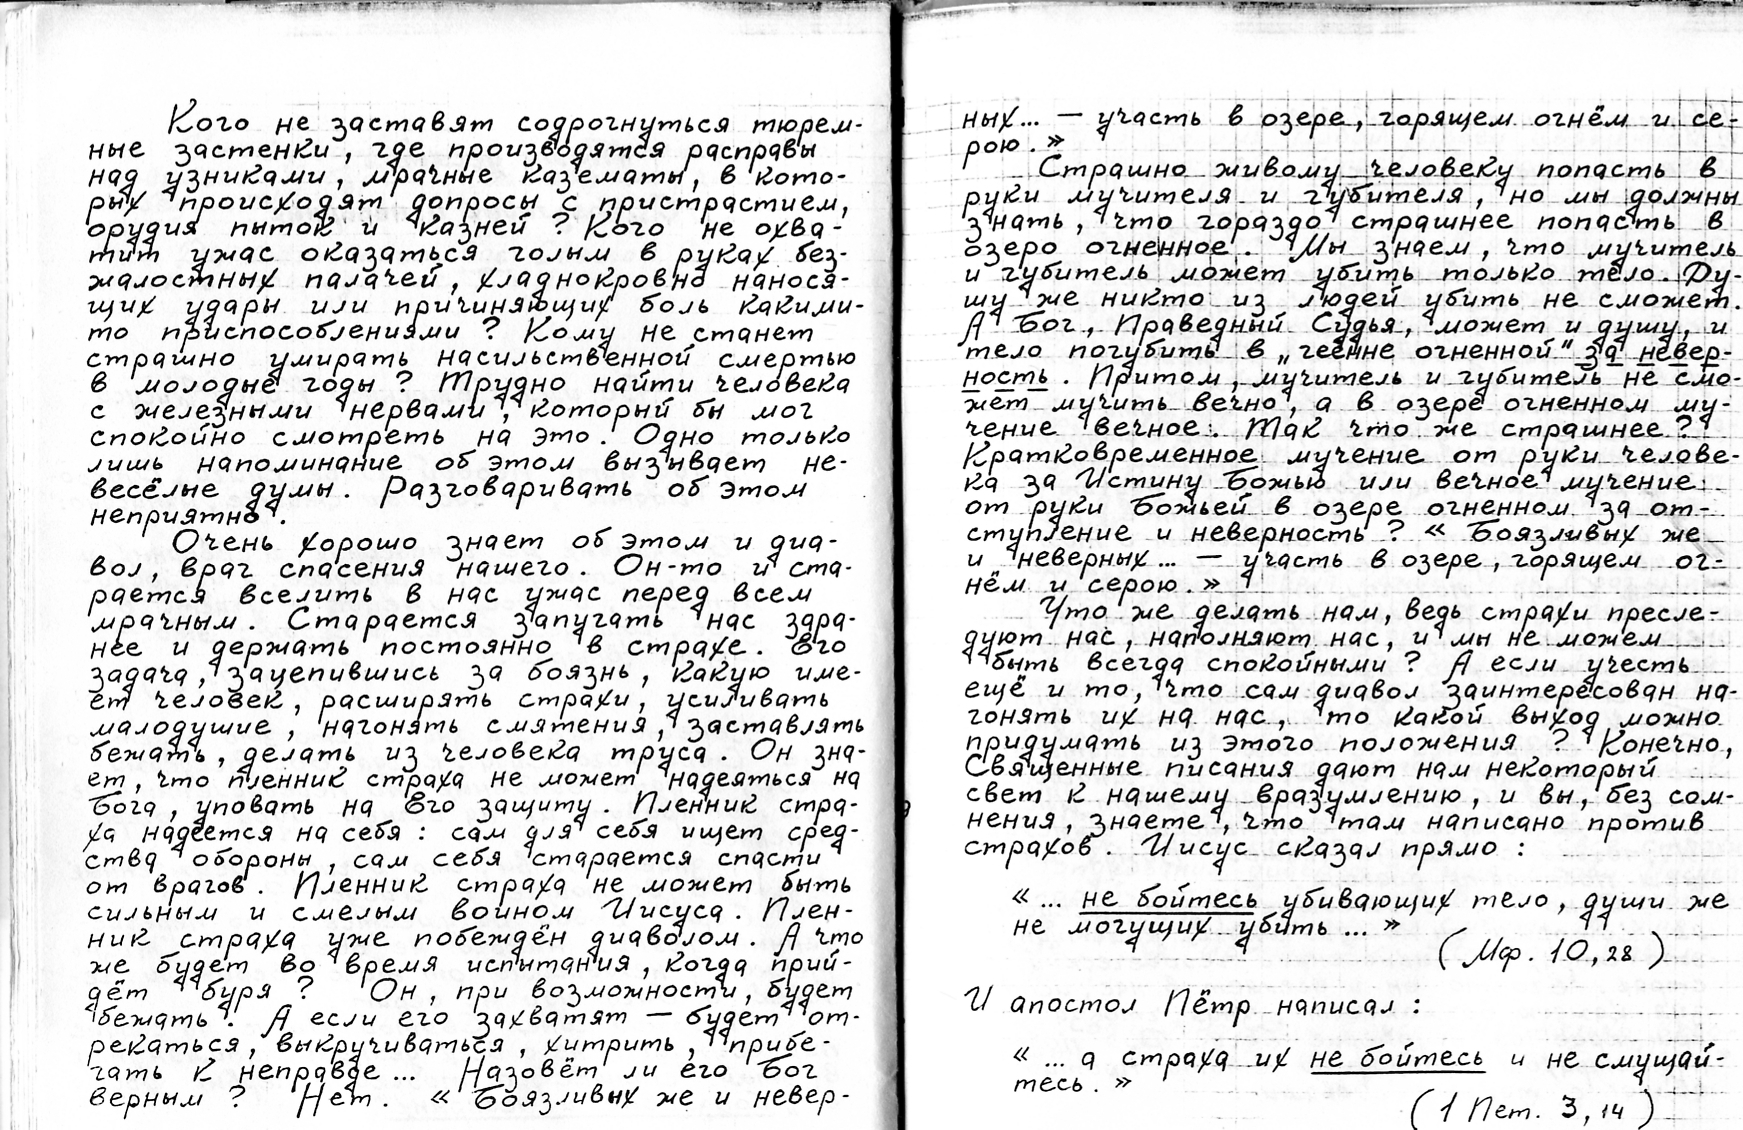 Кого не заставят содрогнуться тюрем-
ные застенки, где производятся расправы
над узниками, мрачные казематы, в кото-
рых происходят допросы с пристрастием,
орудия пыток и казней? Кого не охва-
тит ужас оказаться голым в руках без-
жалостных палачей, хладнокровно нанося-
щих удары или причиняющих боль какими-
то приспособлениями? Кому не станет
страшно умирать насильственной смертью
в молодые годы? Трудно найти человека
с железными нервами, который бы мог
спокойно смотреть на это. Одно только
лишь напоминание об этом вызывает не-
весёлые думы. Разговаривать об этом
неприятно.
Очень хорошо знает об этом и диа-
вол, враг спасения нашего. Он-то и ста-
рается вселить в нас ужас перед всем
мрачным. Старается запугать нас зара-
нее и держать постоянно в страхе. Его
задача, зацепившись за боязнь, какую име-
ет человек, расширять страхи, усиливать
малодушие, нагонять смятения, заставлять
бежать, делать из человека труса. Он зна-
ет, что пленник страха не может надеяться на
Бога, уповать на Его защиту. Пленник стра-
ха надеется на себя: сам для себя ищет сред-
ства обороны, сам себя старается спасти
от врагов. Пленник страха не может быть
сильным и смелым воином Иисуса. Плен-
ник страха уже побеждён диаволом. А что
же будет во время испытания, когда прий-
дёт буря? Он, при возможности, будет
бежать. А если его захватят — будет от-
рекаться, выкручиваться, хитрить, прибе-
гать к неправде... Назовёт ли его Бог
верным? Нет. «Боязливых же и невер-
ных... — участь в озере, горящем огнём и се-
рою.»
Страшно живому человеку попасть в
руки мучителя и губителя, но мы должны
знать, что гораздо страшнее попасть в
озеро огненное. Мы знаем, что мучитель
и губитель может убить только тело. Ду-
шу же никто из людей убить не сможет.
А Бог, Праведный Судья, может и душу, и
тело погубить в „геенне огненной" за невер-
ность. Притом, мучитель и губитель не смо-
жет мучить вечно, а в озере огненном му-
чение вечное. Так что же страшнее?
Кратковременное мучение от руки челове-
ка за Истину Божью или вечное мучение
от руки Божьей в озере огненном за от-
ступление и неверность? «Боязливых же
и неверных... — участь в озере, горящем ог-
нём и серою.»
Что же делать нам, ведь страхи пресле-
дуют нас, наполняют нас, и мы не можем
быть всегда спокойными? А если учесть
ещё и то, что сам диавол заинтересован на-
гонять их на нас, то какой выход можно
придумать из этого положения? Конечно,
Священные писания дают нам некоторый
свет к нашему вразумлению, и вы, без сом-
нения, знаете, что там написано против
страхов. Иисус сказал прямо:
«... не бойтесь убивающих тело, души же
не могущих убить...»
(Мф. 10,28)
И апостол Пётр написал:
«... а страха их не бойтесь и не смущай-
тесь.»
(1 Пет. 3,14)